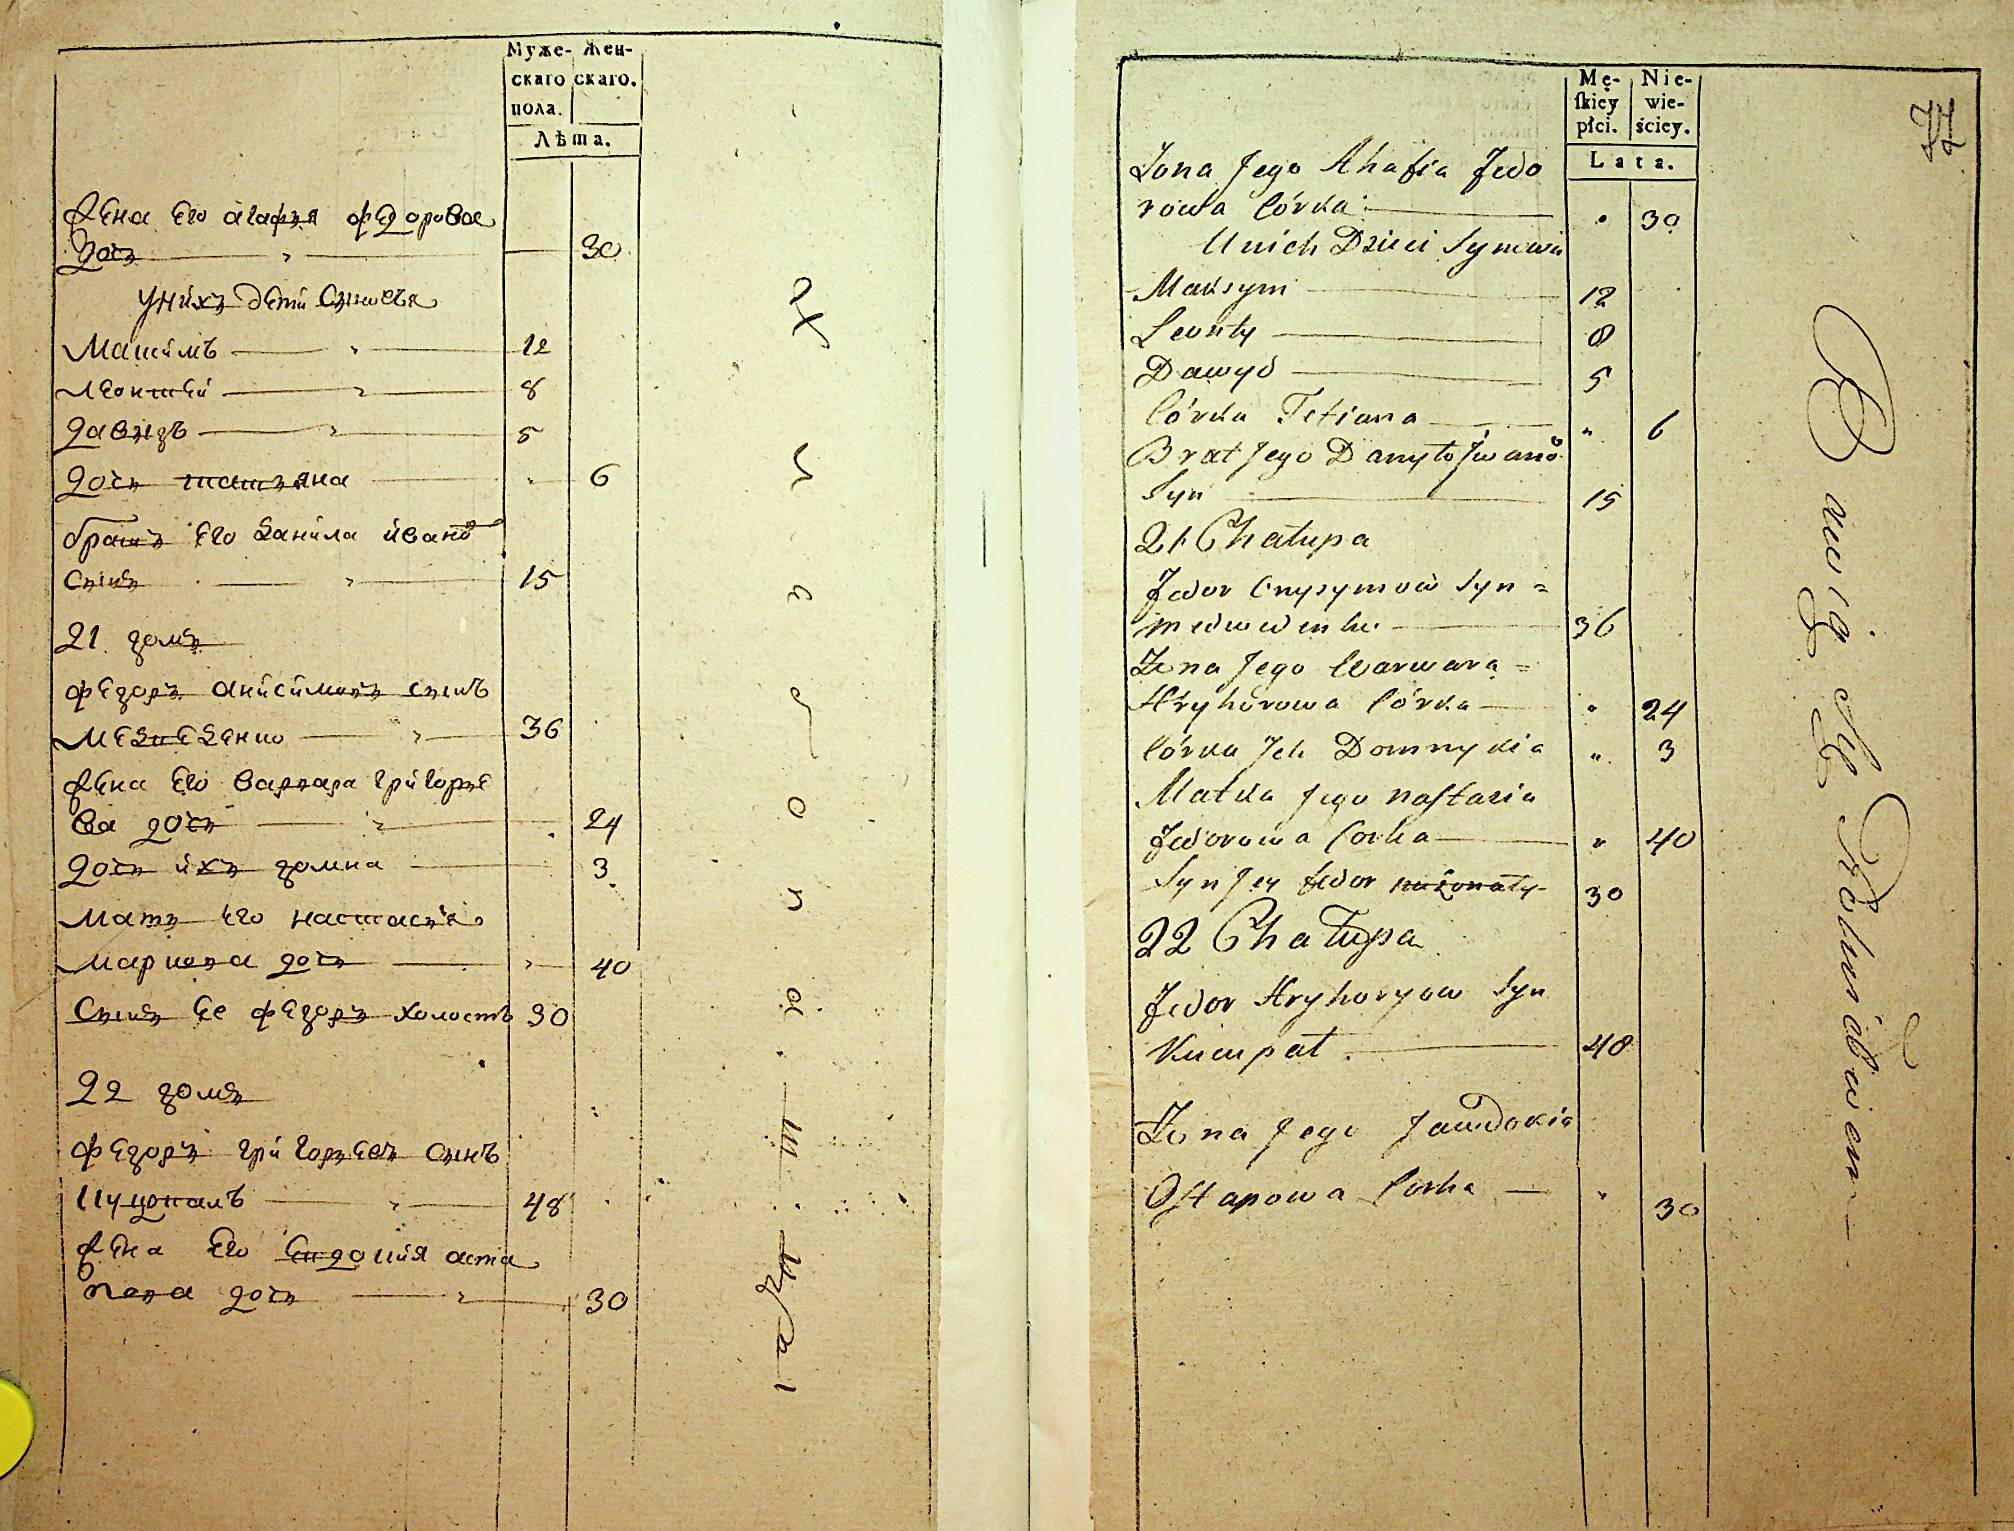 Муже- Жен-
скаго скаго.
пола.
Лѣта.
жена его агафия федорова
дочъ — 30
у нихъ дети сыновья
Максимъ — 12
леонтей — 8
давыдъ — 5
дочь татьяна — 6
братъ его данила ивано
сынъ — 15
21 домъ
федоръ анисимовъ сынъ
медведенко — 36
жена его варвара григорье
ва дочь — 24
дочь ихъ домна — 3
мать его настасья
маркова дочь — 40
сынъ ее федоръ холостъ 30
22 домъ
федоръ григорьевъ сынъ
— 48
жена его евдокия оста
пова дочь — 30
77
Mę- Nie-
skiey wie-
płci. ściey.
Lata.
Żona Jego Ahafia Fedo
rowa Córka — 30
U nich Dzieci Synowie
Maksym — 12
Leonty — 8
Dawyd — 5
Córka Tetiana — „ 6
Brat Jego Danyło Jwanów
Syn — 15
21 Chałupa
Fedor Onysymow Syn =
Medwedenko — 36
Żona Jego Warwara =
Hryhorowa Córka — „ 24
Córka Jch Domnykia „ 3
Matka Jego Nastazia
Fedorowa Corka — „ 40
Syn Jey Fedor nieżonaty 30
22 Chałupa
Fedor Hryhoryow Syn
— 48
Żona Jego Jawdokia
Ostapowa Corka — „ 30